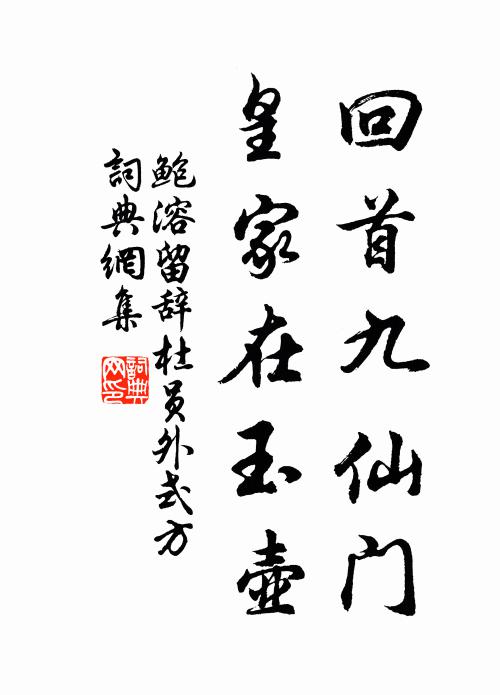 回首九仙门
皇家在玉壶
鲍溶留辞杜员外式方
詞典網集
詞典网印